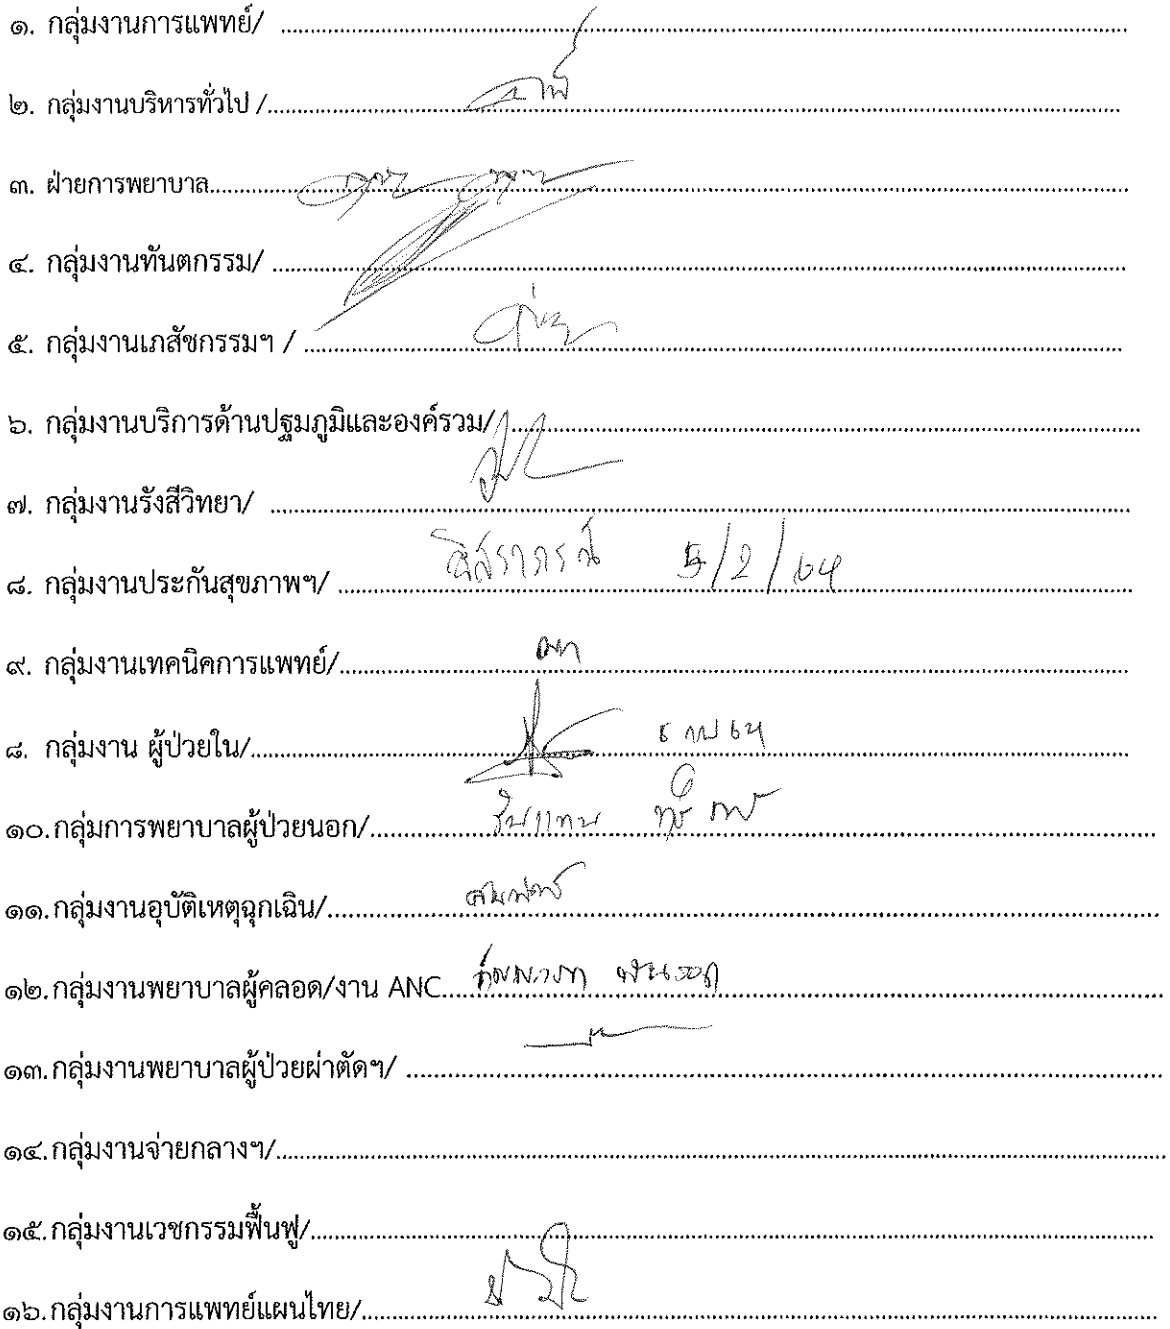 ๑. กลุ่มงานการแพทย์/ ........................................
๒. กลุ่มงานบริหารทั่วไป /........................................
๓. ฝ่ายการพยาบาล........................................
๔. กลุ่มงานทันตกรรม/ ........................................
๕. กลุ่มงานเภสัชกรรมฯ / ........................................
๖. กลุ่มงานบริการด้านปฐมภูมิและองค์รวม/........................................
๗. กลุ่มงานรังสีวิทยา/ ........................................
๘. กลุ่มงานประกันสุขภาพฯ/ ........................................ 5/2/64
๙. กลุ่มงานเทคนิคการแพทย์/........................................
๘. กลุ่มงาน ผู้ป่วยใน/........................................
๑๐.กลุ่มการพยาบาลผู้ป่วยนอก/........................................
๑๑.กลุ่มงานอุบัติเหตุฉุกเฉิน/........................................
๑๒.กลุ่มงานพยาบาลผู้คลอด/งาน ANC........................................
๑๓.กลุ่มงานพยาบาลผู้ป่วยผ่าตัดฯ/ ........................................
๑๔.กลุ่มงานจ่ายกลางฯ/........................................
๑๕.กลุ่มงานเวชกรรมฟื้นฟู/........................................
๑๖.กลุ่มงานการแพทย์แผนไทย/........................................